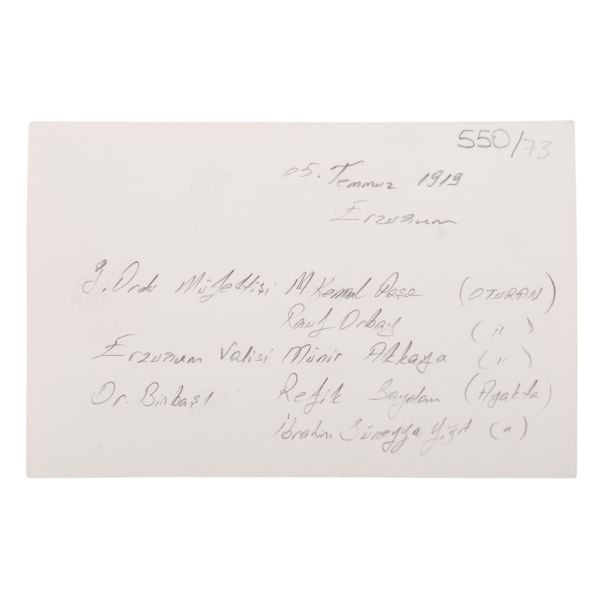 550/73
05. Temmuz 1919
Erzurum
9. Ordu Müfettişi M. Kemal Paşa (OTURAN)
Rauf Orbay (")
Erzurum Valisi Münir Akkaya (")
Dr. Binbaşı Refik Saydam (Ayakta)
İbrahim Süreyya Yiğit (")